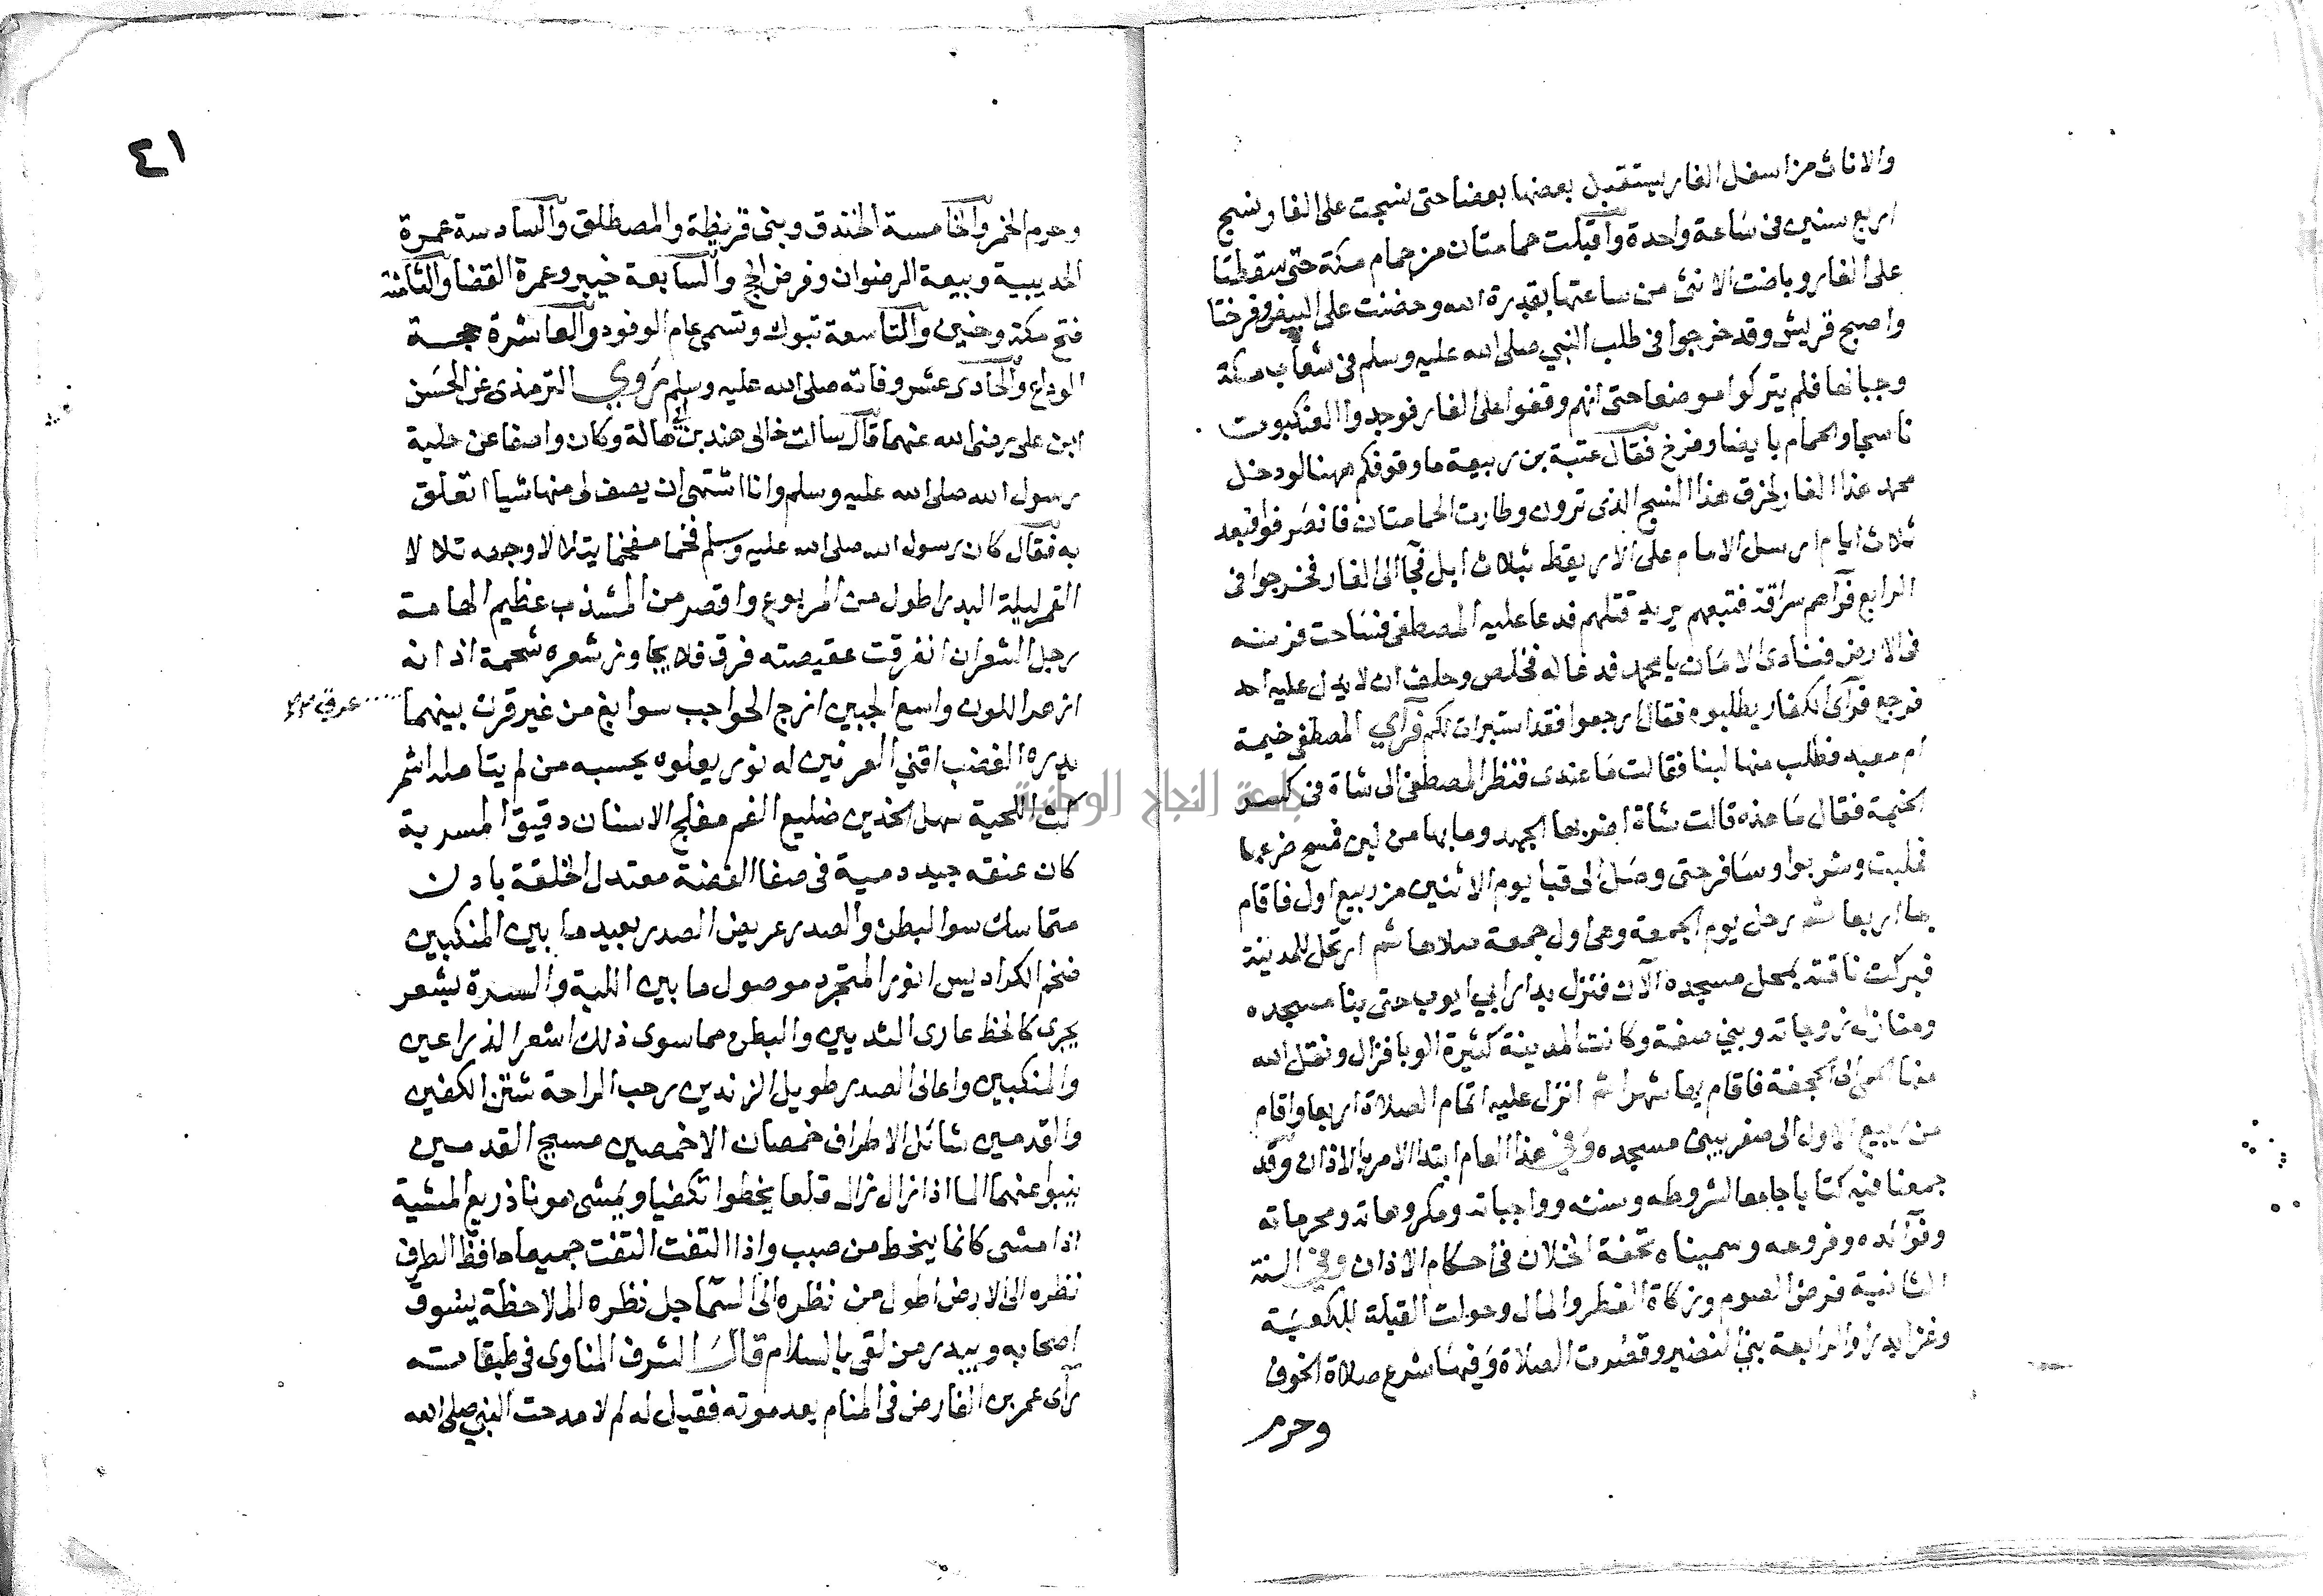 والاناث من اسفل الغار يستقبل بعضها بعضا حتى نسجت على الغار نسج
اربع سنين في ساعة واحدة وآقبلت حمامتان من حمام مكة حتى سقطتا
على الغار وباضت الانثى من ساعتها بقدرة الله وحضنت على البيض وفرختا
واصبح قريش وقد خرجوا في طلب النبي صلى الله عليه وسلم في شعاب مكة
وجبالها فلم يتركوا موضعا حتى انهم وقفوا على الغار فوجدوا العنكبوت
ناسجا والحمام بايضا ومفرخ فقال عتبة بن ربيعة ما وقوفكم ههنا لو دخل
محمد هذا الغار لخرق هذا النسج الذي ترون وطارت الحمامتان فانصرفوا فبعد
ثلاث ايام ارسل الامام على الاريقط بثلاث ابل فجآ الى الغار فخرجوا في
الرابع فرآهم سراقة فتبعهم يريد قتلهم فدعا عليه المصطفى فساخت فرسه
في الارض فنادى الامان يا محمد فدعا له فخلص وحلف ان لا يدل عليه احد
فرجع فرآى الكفار يطلبوه فقال ارجعوا فقد استبرات لكم فرآي المصطفى خيمة
ام معبد فطلب منها لبنا فقالت ما عندى فنظر المصطفى الى شاة في كسر
الخيمة فقال ما هذه قالت شاة اضر بها الجهد وما بها من لبن فمسح ضرعها
فحلبت وشربوا وسافر حتى وصل الى قبا يوم الاثنين من ربيع اول فاقام
بها اربعا ثم رحل يوم الجمعة وهى اول جمعة صلاها ثم ارتحل للمدينة
فبركت ناقته بمحل مسجده الآن فنزل بدار ابي ايوب حتى بنا مسجده
ومنازله زوجاته وبني صفة وكانت المدينة كثيرة الوبا فزال ونقل الله
منها الحمى الى الجحفة فاقام بها شهرا ثم انزل عليه اتمام الصلاة اربعا واقام
من ربيع الاول الى صفر يبنى مسجده وفي هذا العام ابتدا الامر بالاذان وقد
جمعنا فيه كتابا جامعا لشروطه وسنته وواجباته ومكروهاته ومحرماته
وفوآئده وفروعه وسميناه تحفة الخلان في احكام الاذان وفي السنة
الثانية فرض الصوم وزكاة الفطر والمال وحولت القبلة للكعبة
وغزا بدرا والرابعة بني النضير وقصرت الصلاة وفيها شرع صلاة الخوف
وحرم
٤١
وحرم الخمر والخامسة الخندق وبنى قريظة والمصطلق والسادسة عمرة
الحديبية وبيعة الرضوان وفرض الحج والسابعة خيبر وعمرة القضا والثامنة
فتح مكة وحنين والتاسعة تبوك وتسمى عام الوفود والعاشرة حجة
الوداع والحادى عشر وفاته صلى الله عليه وسلم روي الترمذى عن الحسن
ابن على رضى الله عنهما قال سالت خالى هند بن ابي هالة وكان واصفا عن حلية
رسول الله صلى الله عليه وسلم وانا اشتهى ان يصف لى منها شيا اتعلق
به فقال كان رسول الله صلى الله عليه وسلم فخما مفخما يتلالا وجهه تلالا
القمر ليلة البدر اطول من المربوع واقصر من المشذب عظيم الهامة
رجل الشعر ان انفرقت عقيصته فرق فلا يجاوز شعره شحمة اذانه
ازهر اللون واسع الجبين ازج الحواجب سوابغ من غير قرن بينهما
عرق
يدره الغضب اقني العرنين له نور يعلوه يحسبه من لم يتامله اشم
كث اللحية سهل الخدين ضليع الفم مفلج الاسنان دقيق المسربة
كان عنقه جيد دمية في صفا الفضة معتدل الخلقة بادن
متماسك سوا البطن والصدر عريض الصدر بعيد ما بين المنكبين
ضخم الكراديس انور المتجرد موصول ما بين اللبة والسرة بشعر
يجرى كالخط عارى الثديين والبطن مما سوى ذلك اشعر الذراعين
والمنكبين واعالى الصدر طويل الزندين رحب الراحة شثن الكفين
والقدمين سائل الاطراف خمصان الاخمصين مسيح القدمين
ينبوا عنهما الما اذا زال زال قلعا يخطوا تكفيا ويمشى هونا ذريع المشية
اذا مشى كانما ينحط من صبب واذا التفت التفت جميعا خافظ الطرف
نظره الى الارض اطول من نظره الى السما جل نظره الملاحظة يسوق
اصحابه ويبدر من لقى بالسلام قال الشرف المناوى في طبقاته
رآى عمر بن الفارض في المنام بعد موته فقيل له لم لا مدحت النبي صلى الله
جامعة النجاح الوطنية